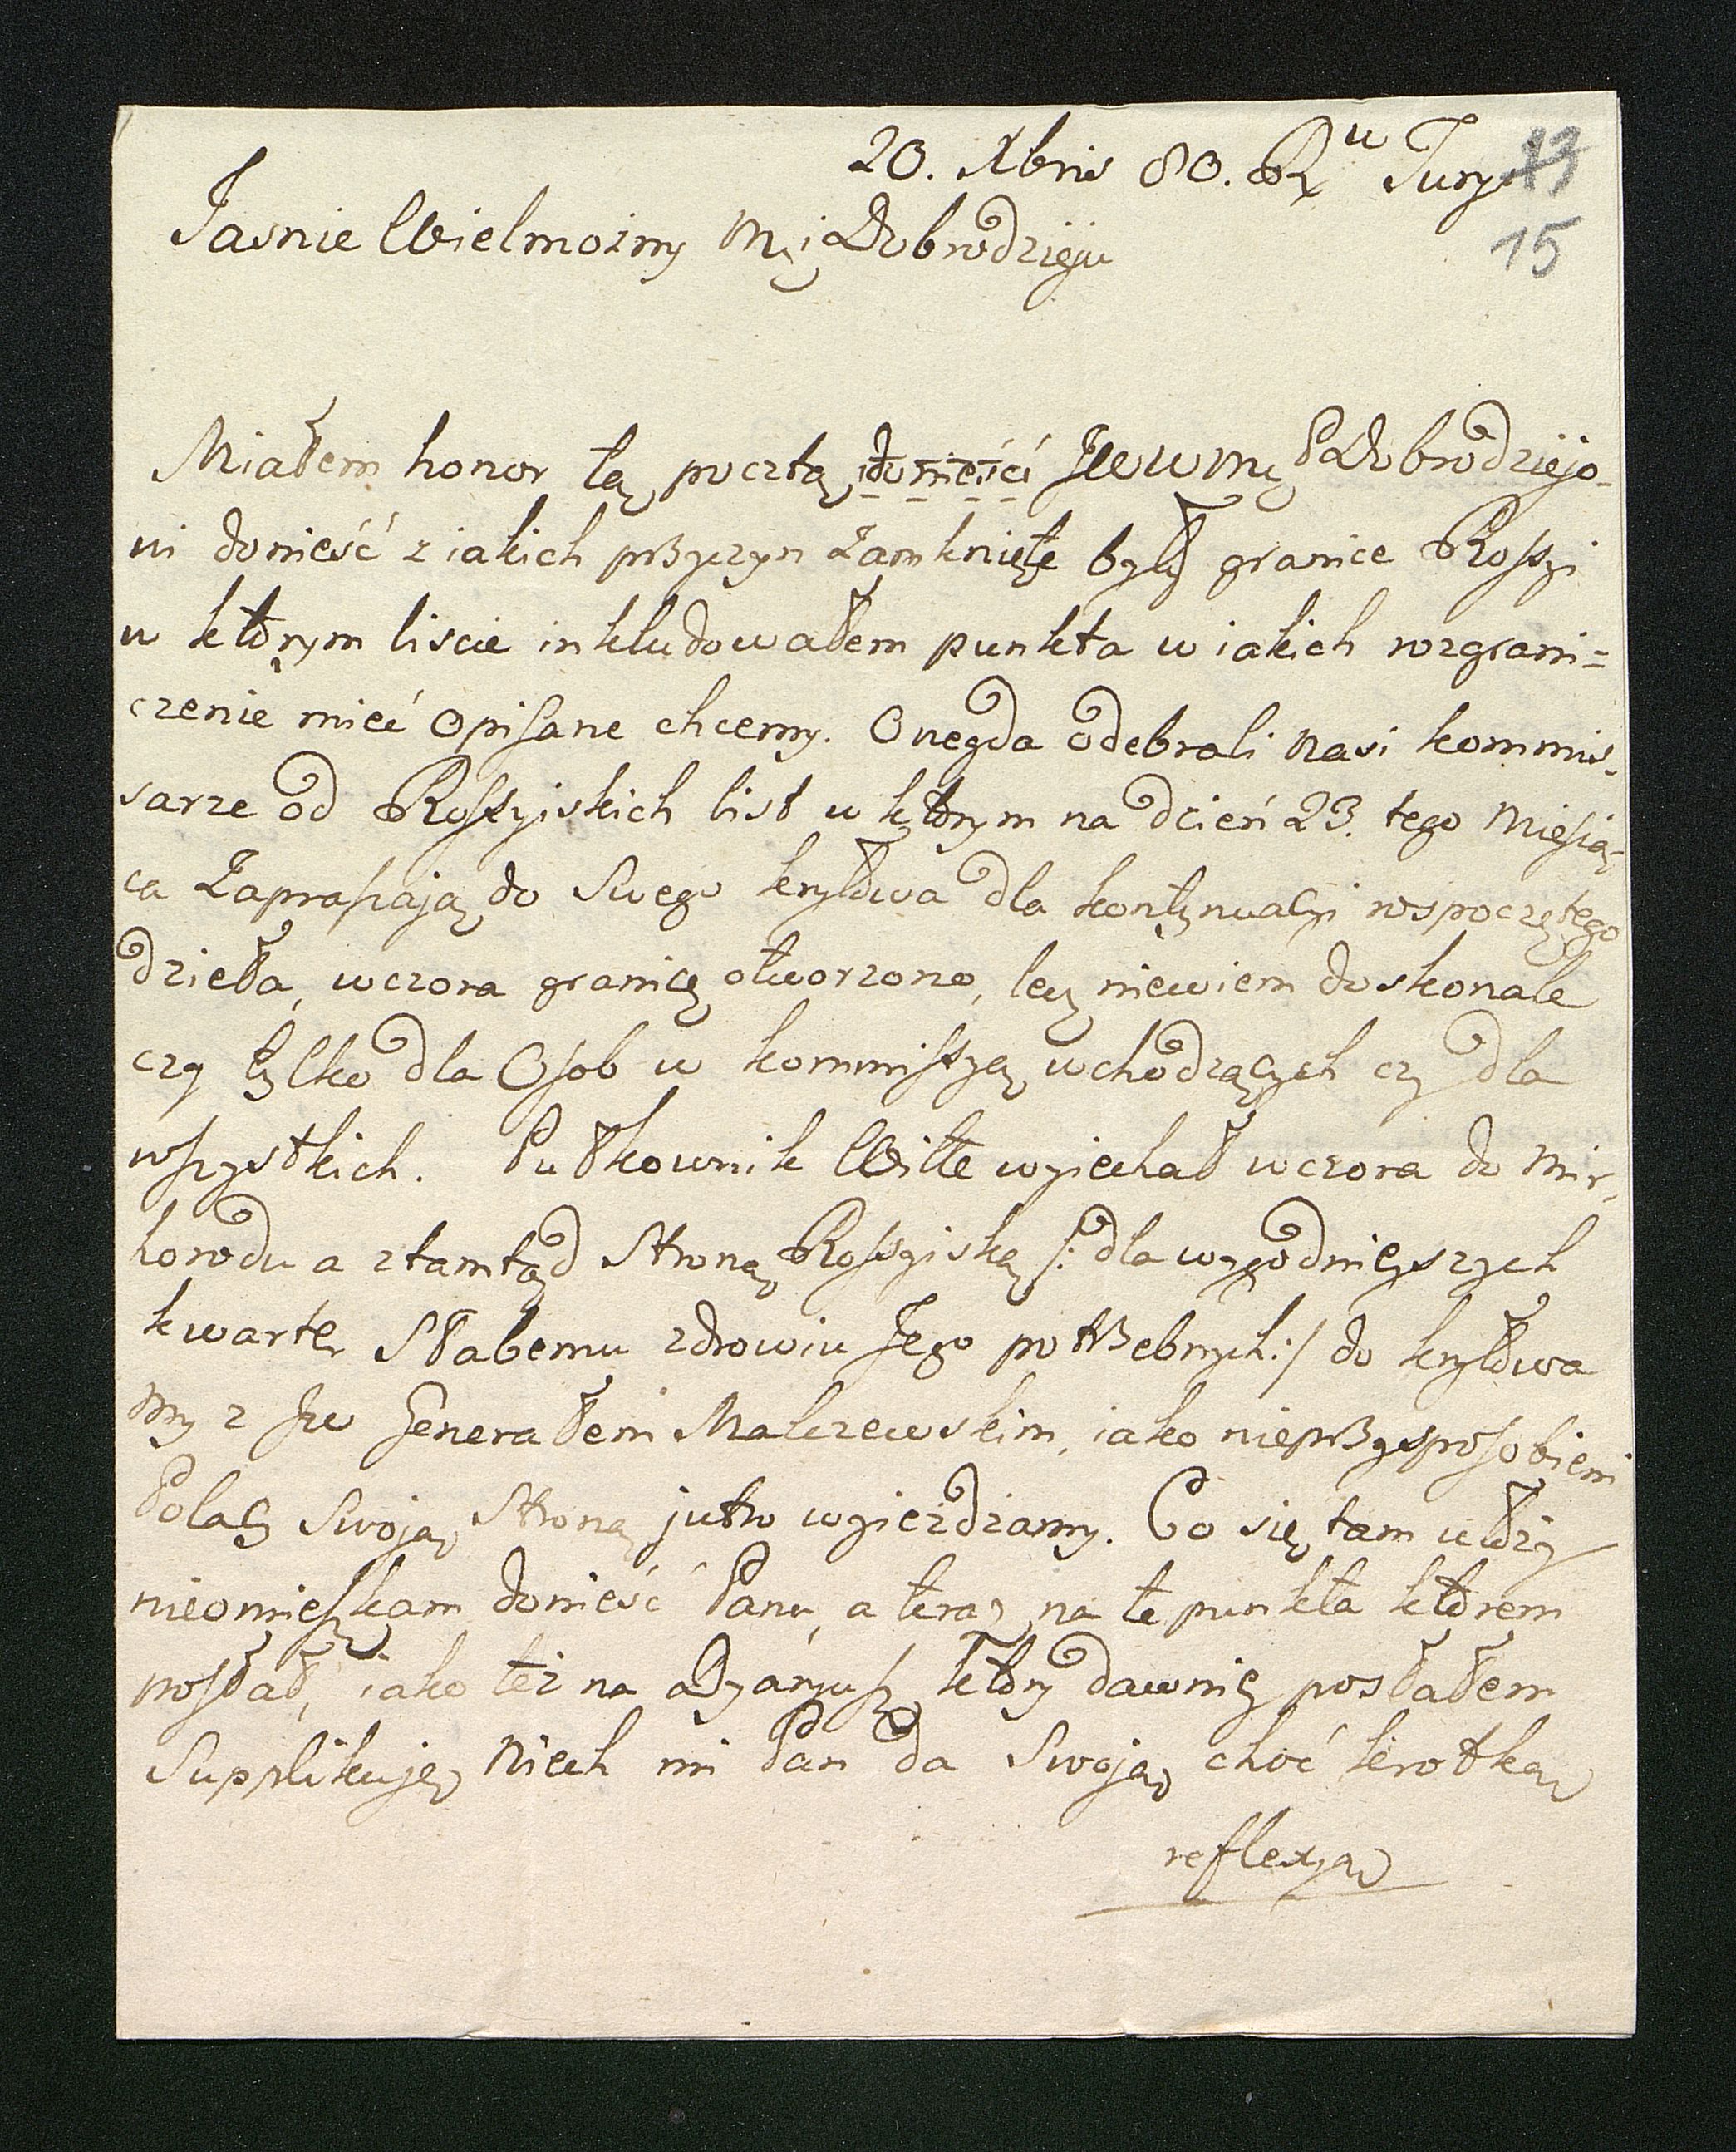 20. Xbris 80. R<sup>u</sup> Tury 13
15
Jasnie Wielmożny Mći Dobrodzieju
Miałem honor tą pocztą donieść JWWMć P Dobrodziejo-
wi donieść z iakich przyczyn zamknięte były granice Rossyi
w ktorym liscie inkludowałem punkta w iakich rozgrani=
czenie mieć opisane chcemy. Onegda odebrali nasi kommis-
sarze od Rossyiskich list w ktorym na dzień 23. tego Miesią-
ca Zapraszają do Swego kryłowa dla kontynuacyi rospoczętego
dzieła, wczora granicę otworzono, lecz niewiem doskonale
czy tylko dla Osob w kommissyą wchodzących czy dla
wszystkich. Pułkownik Witte wyiechał wczora do Mir-
horodu a ztamtąd Stroną Rossyiską /: dla wygodnieyszych
kwarter Słabemu zdrowiu Jego potrzebnych :/ do kryłowa
my z Jw Generałem Malczewskim, iako nieprzysposobieni
Polacy Swoją Stroną jutro wyieżdzamy. Co się tam ułoży
nieomieszkam donieść Panu, a teraz na te punkta ktorem
posłał, iako też na dyaryusz ktory dawniey posłałem
Supplikuję Niech mi Pan da Swoją choć krotką
reflexyą